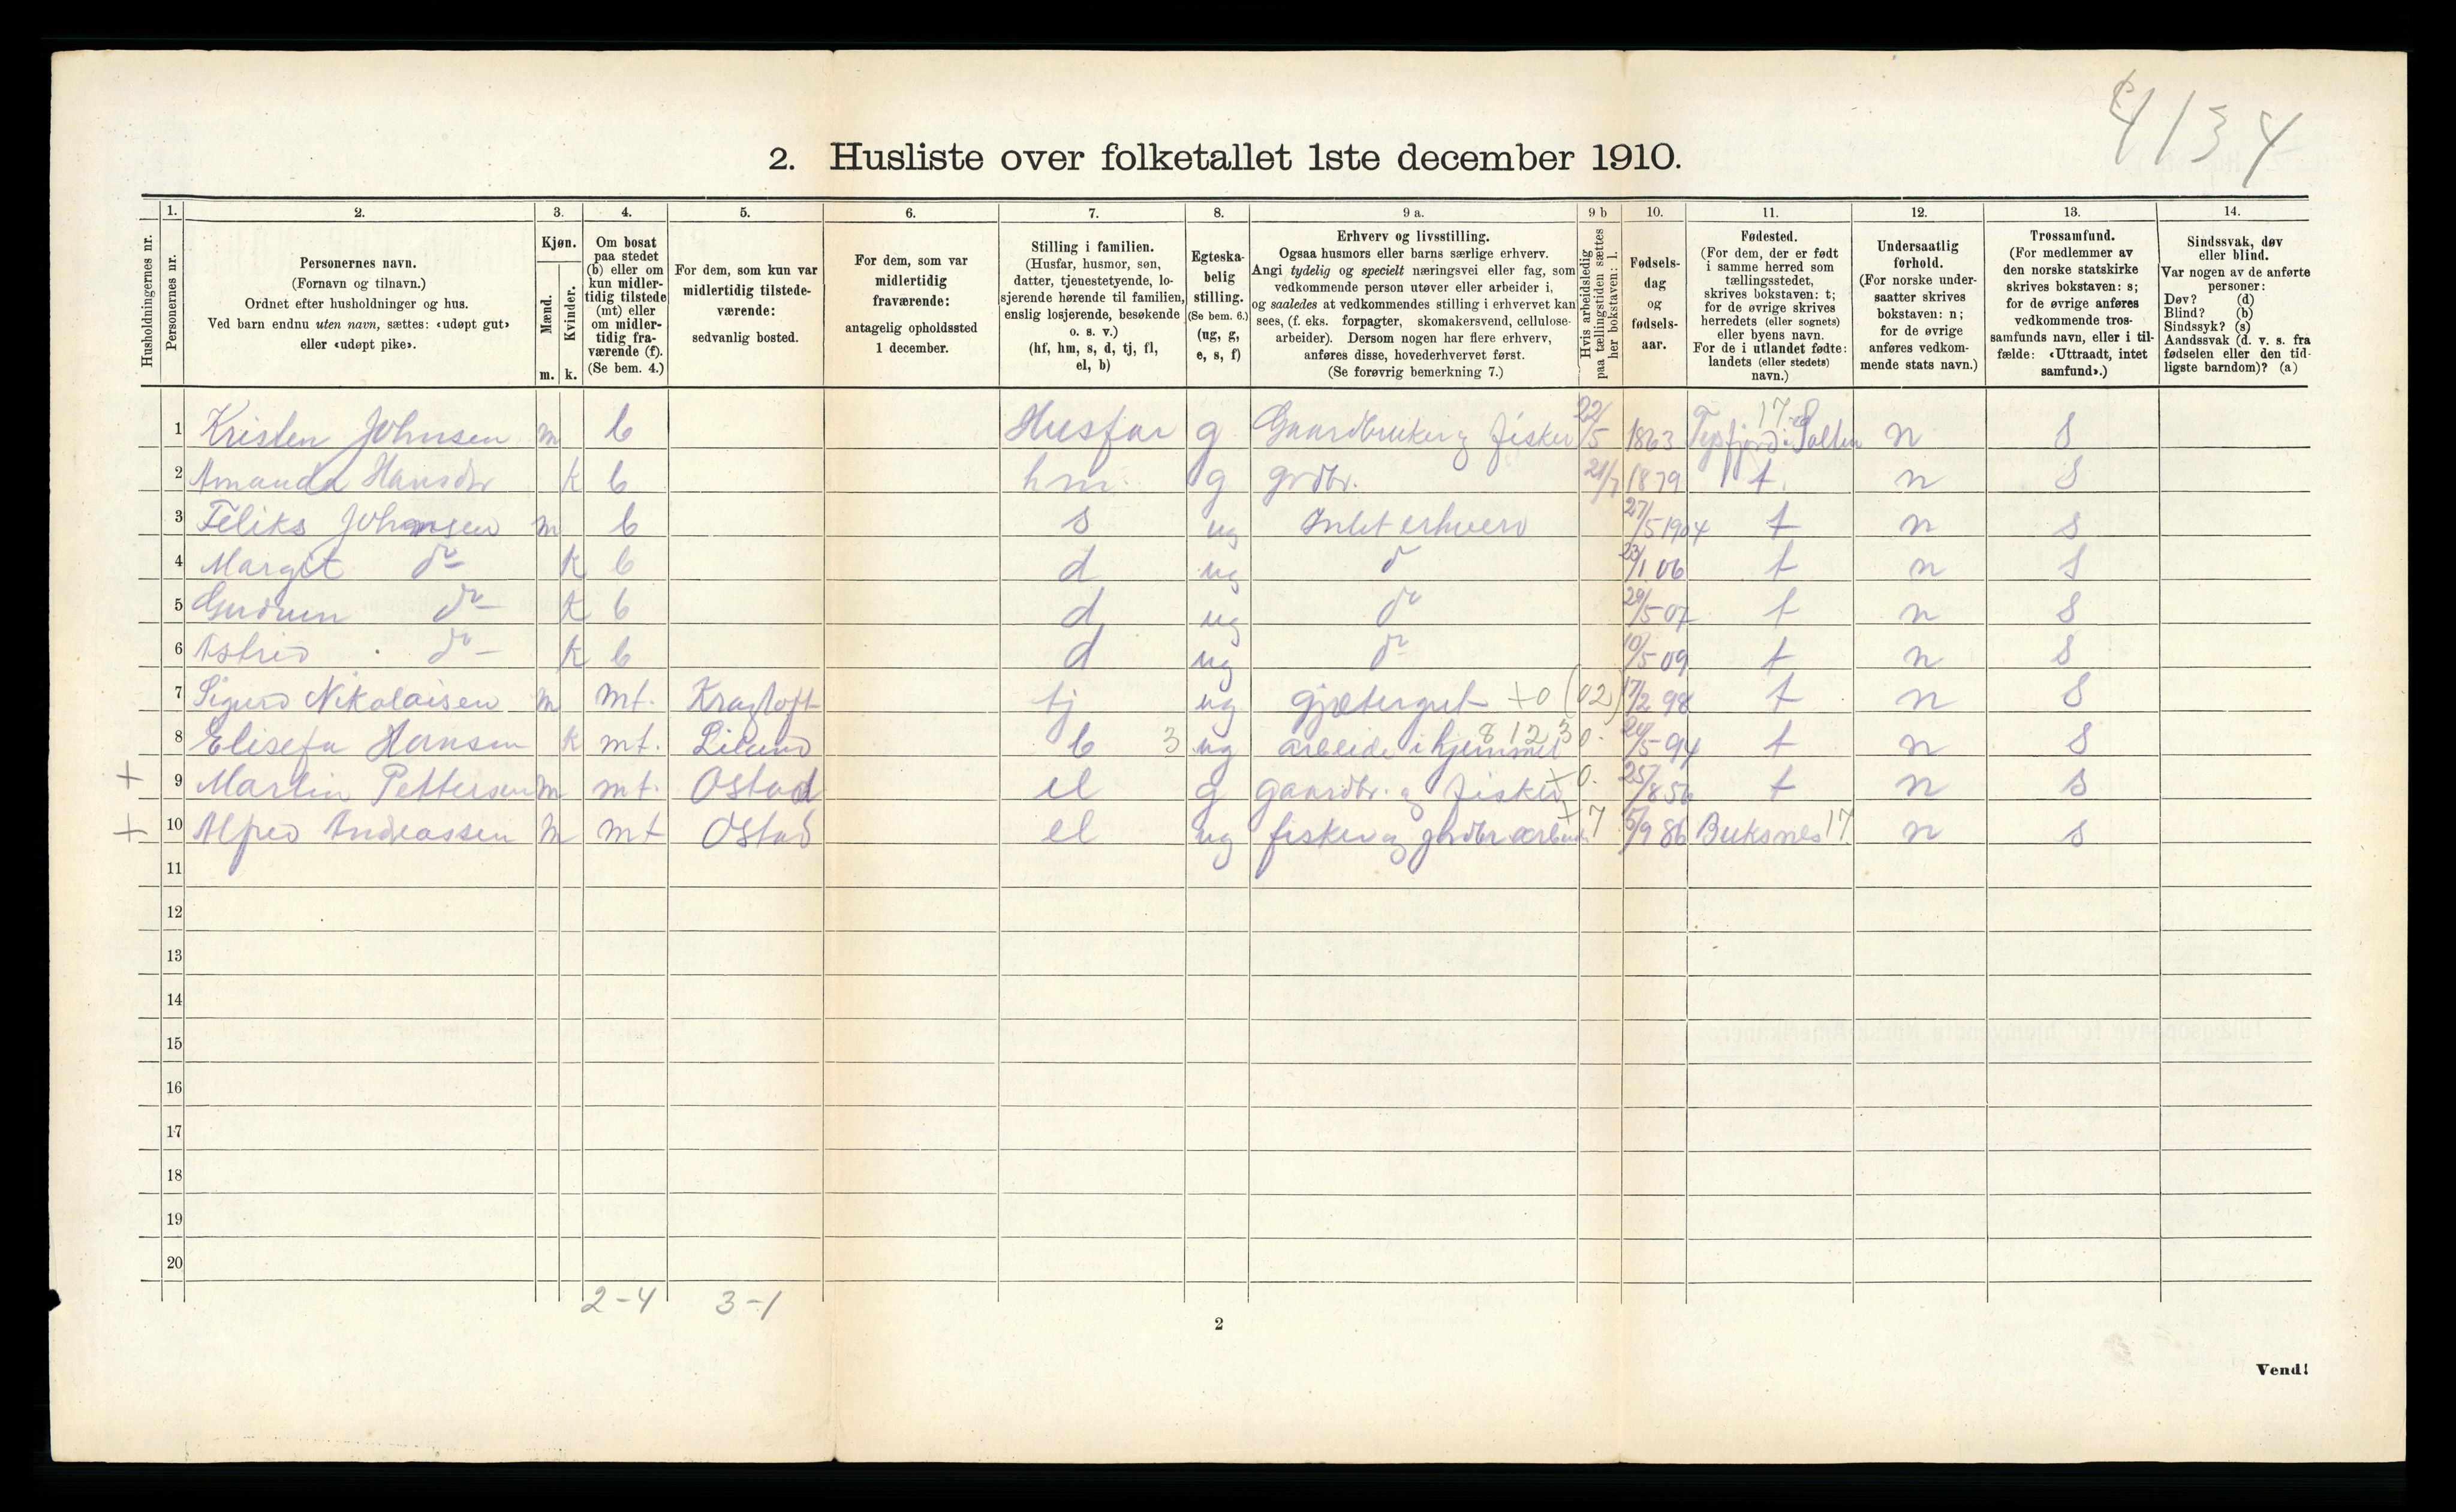 4134
2. Husliste over folketallet 1ste december 1910.
Husholdningernes nr.
1. Personernes nr.
2. Personernes navn.
(Fornavn og tilnavn.)
Ordnet efter husholdninger og hus.
Ved barn endnu uten navn, sættes: «udøpt gut»
eller «udøpt pike».
3. Kjøn.
Mænd. Kvinder.
m. k.
4. Om bosat
paa stedet
(b) eller om
kun midler-
tidig tilstede
(mt) eller
om midler-
tidig fra-
værende (f).
(Se bem. 4.)
5. For dem, som kun var
midlertidig tilstede-
værende:
sedvanlig bosted.
6. For dem, som var
midlertidig
fraværende:
antagelig opholdssted
1 december.
7. Stilling i familien.
(Husfar, husmor, søn,
datter, tjenestetyende, lo-
sjerende hørende til familien,
enslig losjerende, besøkende
o. s. v.)
(hf, hm, s, d, tj, fl,
el, b)
8. Egteska-
belig
stilling.
(Se bem. 6.)
(ug, g,
e, s, f)
9 a. Erhverv og livsstilling.
Ogsaa husmors eller barns særlige erhverv.
Angi tydelig og specielt næringsvei eller fag, som
vedkommende person utøver eller arbeider i,
og saaledes at vedkommendes stilling i erhvervet kan
sees, (f. eks. forpagter, skomakersvend, cellulose-
arbeider). Dersom nogen har flere erhverv,
anføres disse, hovederhvervet først.
(Se forøvrig bemerkning 7.)
9 b Hvis arbeidsledig
paa tællingstiden sættes
her bokstaven: l.
10. Fødsels-
dag
og
fødsels-
aar.
11. Fødested.
(For dem, der er født
i samme herred som
tællingsstedet,
skrives bokstaven: t;
for de øvrige skrives
herredets (eller sognets)
eller byens navn.
For de i utlandet fødte:
landets (eller stedets)
navn.)
12. Undersaatlig
forhold.
(For norske under-
saatter skrives
bokstaven: n;
for de øvrige
anføres vedkom-
mende stats navn.)
13. Trossamfund.
(For medlemmer av
den norske statskirke
skrives bokstaven: s;
for de øvrige anføres
vedkommende tros-
samfunds navn, eller i til-
fælde: «Uttraadt, intet
samfund».)
14. Sindssvak, døv
eller blind.
Var nogen av de anførte
personer:
Døv? (d)
Blind? (b)
Sindssyk? (s)
Aandssvak (d. v. s. fra
fødselen eller den tid-
ligste barndom)? (a)
1 Kristen Johnsen m b Husfar g Gaardbruker og fisker 22/5 1863 Tysfjord i Salten 17 n s
2 Amanda Hansdr k b hm. g grdbr. 21/7 1879 t. n s
3 Feliks Johnsen m b s ug Intet erhverv 27/5 1904 t n s
4 Margit do k b d ug do 23/1 06 t n s
5 Gudrun do k b d ug do 29/5 07 t n s
6 Astrid do k b d ug do 10/5 09 t n s
7 Sigurd Nikolaisen m mt. Kragtoft tj ug gjætergut +0 (02) 17/2 98 t n s
8 Elisefa Hansen k mt. Liland b 3 ug arbeide i hjemmet 8123 0. 24/5 94 t n s
+ 9 Martin Pettersen m mt. Ostad el g gaardbr. og fisker +0. 25/8 56 t n s
+ 10 Alfred Andreassen m mt Ostad el ug fisker og grdbrarbeide +7 5/9 86 Buksnes 17 n s
11
12
13
14
15
16
17
18
19
20
2-4 3-1
2
Vend!